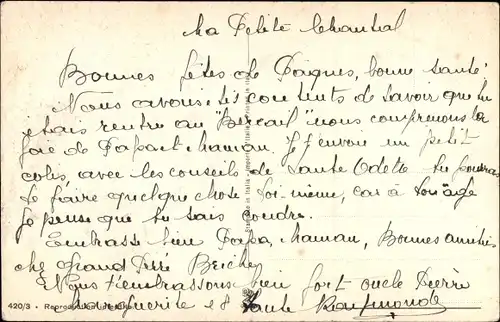 Ma Petite Chantal
Bonnes fêtes de Pâques, bonne santé.
Nous avons été contents de savoir que tu
étais rentré au "Bercail" nous comprenons la
joie de Papa et Maman. Je t'envoie un petit
colis, avec les conseils de Tante Odette tu pourras
te faire quelque chose toi-même, car à ton âge
je pense que tu sais coudre.
Embrasse bien Papa, Maman, Bonnes amitiés
chez Grand Père
Nous t'embrassons bien fort oncle Pierre
Marguerite et Tante Raymonde
420/3 - Reproduction interdite